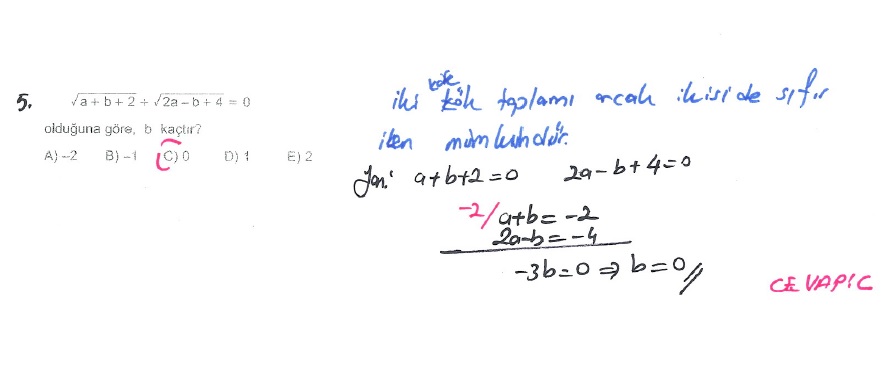 5. √a + b + 2 + √2a − b + 4 = 0
olduğuna göre, b kaçtır?
A) −2 B) −1 C) 0 D) 1 E) 2
iki kök toplamı ancak ikiside sıfır
iken mümkündür.
Yani a+b+2=0 2a−b+4=0
−2/ a+b=−2
2a−b=−4
−3b=0 ⇒ b=0//
CEVAP: C